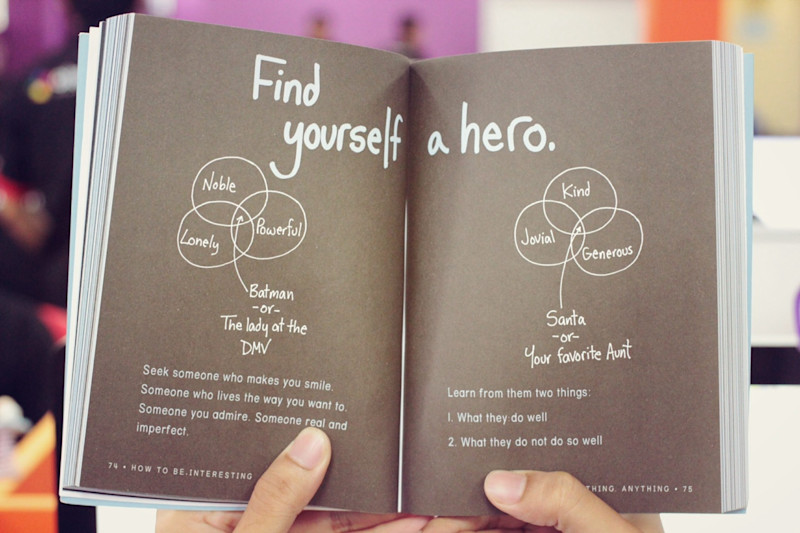 Find
yourself a hero.
Noble
Lonely
Powerful
Batman
-or-
The lady at the
DMV
Seek someone who makes you smile.
Someone who lives the way you want to.
Someone you admire. Someone real and
imperfect.
74 • HOW TO BE INTERESTING
Kind
Jovial
Generous
Santa
-or-
Your favorite Aunt
Learn from them two things:
1. What they do well
2. What they do not do so well
THING, ANYTHING • 75